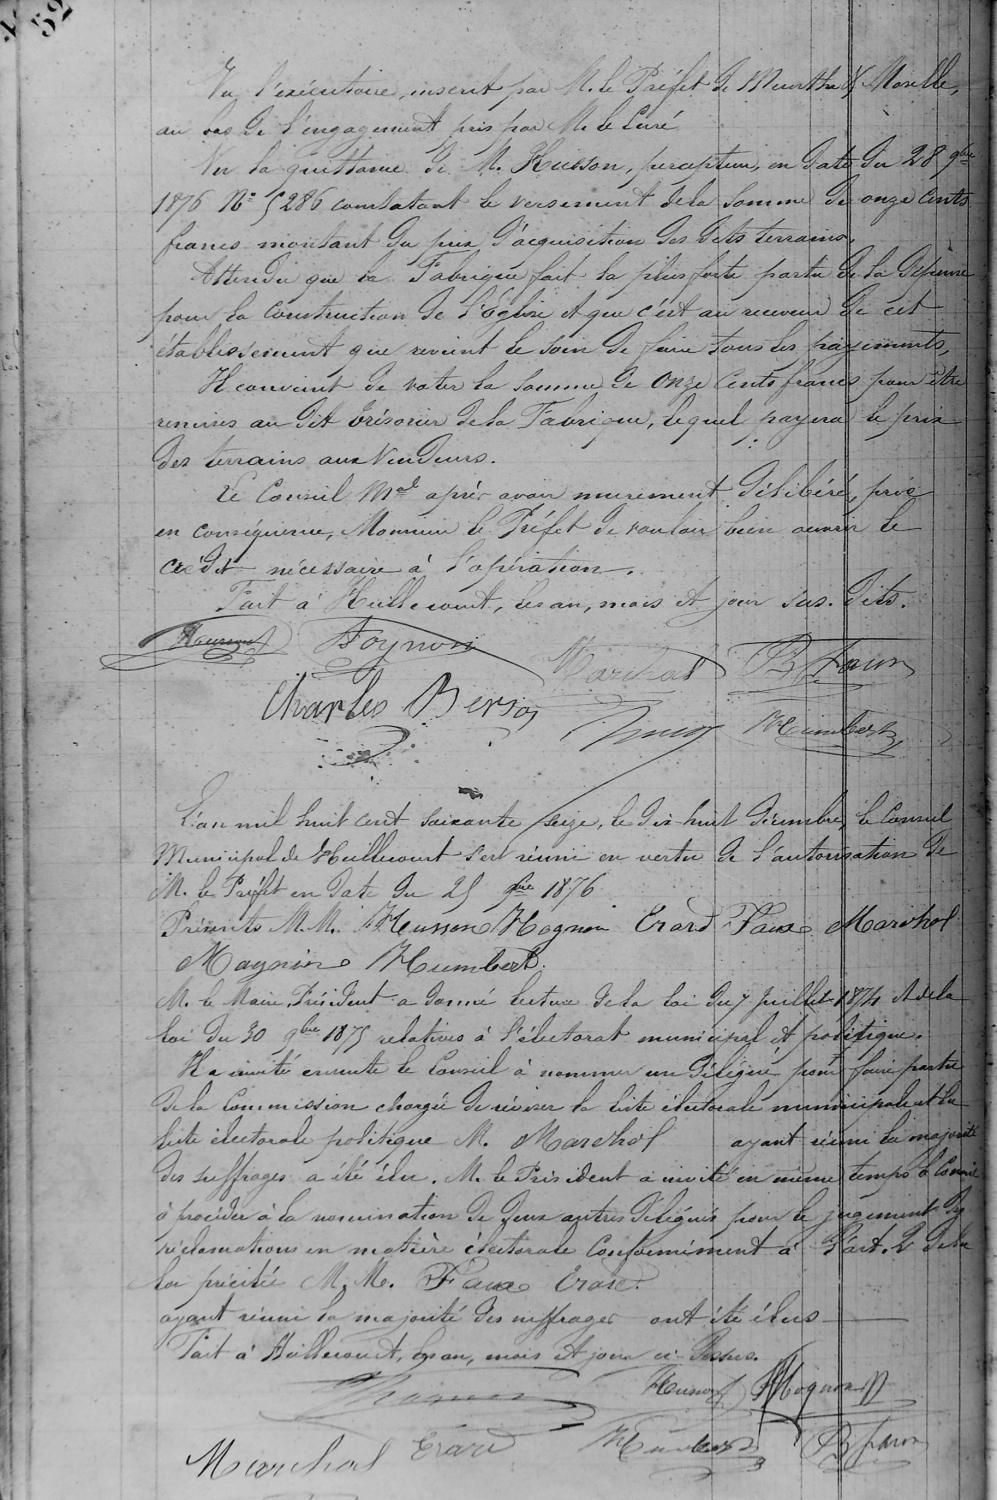 52
Vu l'exécutoire, inscrit par M. le Préfet de Meurthe & Moselle,
au bas de l'engagement pris par M. le Curé
Vu la quittance de M. Husson, percepteur, en date du 28 9bre
1876 No 5286 constatant le versement de la somme de onze cents
francs montant du prix d'acquisition des dits terrains.
Attendu que la Fabrique fait la plus forte partie de la dépense
pour la construction de l'Eglise et que c'est au receveur de cet
établissement que revient le soin de faire tous les payements,
Il convient de voter la somme de onze cents francs pour être
remises au dit trésorier de la Fabrique, lequel payera le prix
des terrains aux vendeurs.
Le Conseil Mal après avoir murement délibéré, prie
en conséquence, Monsieur le Préfet de vouloir bien ouvrir le
crédit nécessaire à l'opération.
Fait à Heillecourt, les an, mois et jour sus-dits.
Hognon Marchal
Charles Humbert
L'an mil huit cent soixante seize, le dix-huit décembre, le Conseil
Municipal de Heillecourt s'est réuni en vertu de l'autorisation de
M. le Préfet en date du 25 9bre 1876
Présents M.M. Husson Hognon Erard Faux Marchal
Magnien Humbert.
M. le Maire, Président a donné lecture de la loi du 7 Juillet 1874 et de la
loi du 30 9bre 1875 relatives à l'électorat municipal et politique.
Il a invité ensuite le Conseil à nommer un délégué pour faire partie
de la Commission chargée de réviser la liste électorale municipale et la
liste électorale politique M. Marchal ayant réuni la majorité
des suffrages a été élu. M. le Président a invité en même temps le Conseil
à procéder à la nomination de deux autres délégués pour le jugement des
réclamations en matière électorale conformément à l'art. 2 de la
loi précitée M.M. Faux Erard.
ayant réuni la majorité des suffrages ont été élus
Fait à Heillecourt, les an, mois et jour ci-dessus.
Husson Hognon
Marchal Erard Humbert